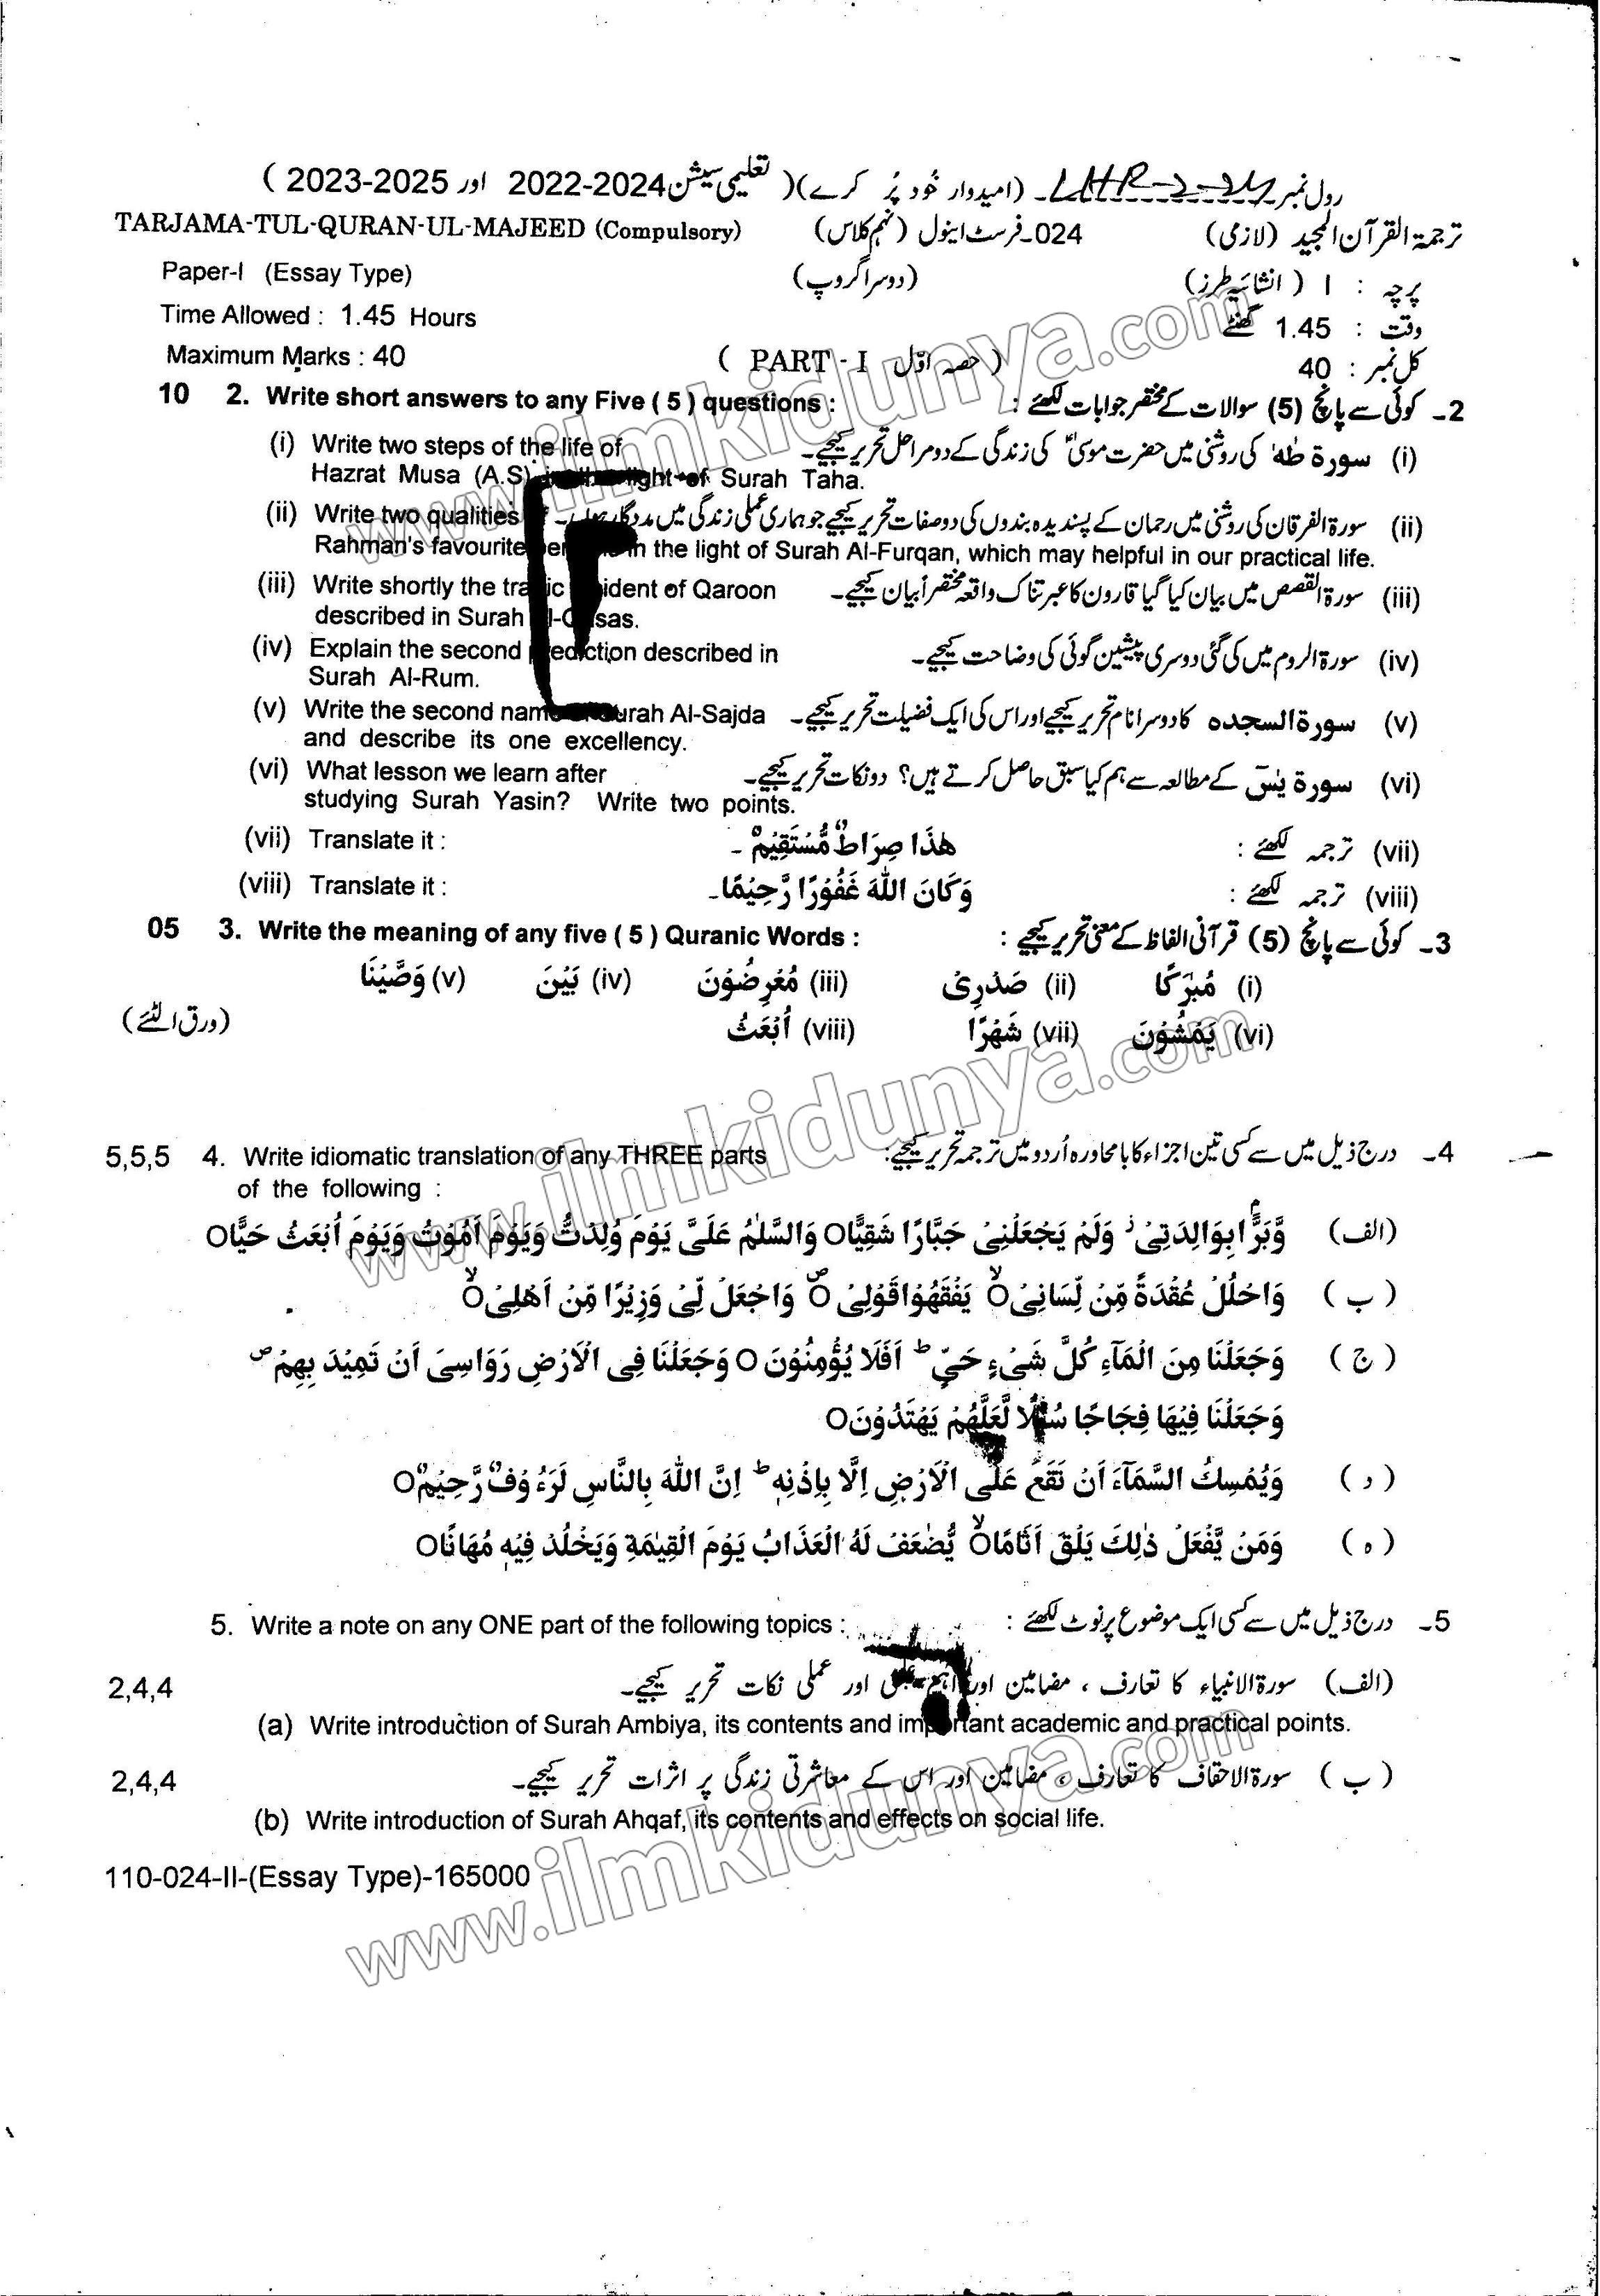 رول نمبر LHR-2-24 ۔ (امیدوار خُود پُر کرے) ( تعلیمی سیشن 2024-2022 اور 2025-2023 )
ترجمۃ القرآن المجید (لازمی) 024۔فرسٹ اینول (نہم کلاس) TARJAMA-TUL-QURAN-UL-MAJEED (Compulsory)
پرچہ : I (انشائیہ طرز) (دوسرا گروپ) Paper-I (Essay Type)
وقت : 1.45 گھنٹے Time Allowed : 1.45 Hours
کل نمبر : 40 ( PART - I حصہ اوّل ) Maximum Marks : 40
10 2. Write short answers to any Five ( 5 ) questions : 2۔ کوئی سے پانچ (5) سوالات کے مختصر جوابات لکھئے :
(i) Write two steps of the life of (i) سورة طٰهٰ کی روشنی میں حضرت موسیٰؑ کی زندگی کے دو مراحل تحریر کیجیے۔
Hazrat Musa (A.S) light of Surah Taha.
(ii) Write two qualities (ii) سورۃ الفرقان کی روشنی میں رحمان کے پسندیدہ بندوں کی دو صفات تحریر کیجیے جو ہماری عملی زندگی میں مددگار ہوں۔
Rahman's favourite in the light of Surah Al-Furqan, which may helpful in our practical life.
(iii) Write shortly the of Qaroon (iii) سورۃ القصص میں بیان کیا گیا قارون کا عبرتناک واقعہ مختصراً بیان کیجیے۔
described in Surah
(iv) Explain the second prediction described in (iv) سورۃ الروم میں کی گئی دوسری پیشین گوئی کی وضاحت کیجیے۔
Surah Al-Rum.
(v) Write the second name Surah Al-Sajda (v) سورة السجدہ کا دوسرا نام تحریر کیجیے اور اس کی ایک فضیلت تحریر کیجیے۔
and describe its one excellency.
(vi) What lesson we learn after (vi) سورة یٰسٓ کے مطالعہ سے ہم کیا سبق حاصل کرتے ہیں؟ دو نکات تحریر کیجیے۔
studying Surah Yasin? Write two points.
(vii) Translate it : هٰذَا صِرَاطٌ مُّسْتَقِيْمٌ ۔ (vii) ترجمہ لکھئے :
(viii) Translate it : وَكَانَ اللّٰهَ غَفُوْرًا رَّحِيْمًا۔ (viii) ترجمہ لکھئے :
05 3. Write the meaning of any five ( 5 ) Quranic Words : 3۔ کوئی سے پانچ (5) قرآنی الفاظ کے معنی تحریر کیجیے :
(i) مُبٰرَكًا (ii) صَدْرِىْ (iii) مُعْرِضُوْنَ (iv) بَيْنَ (v) وَصَّيْنَا
(vi) يَمْشُوْنَ (vii) شَهْرًا (viii) اُبْعَثُ (ورق الٹئے)
5,5,5 4. Write idiomatic translation of any THREE parts 4۔ درج ذیل میں سے کسی تین اجزاء کا بامحاورہ اُردو میں ترجمہ تحریر کیجیے:
of the following :
(الف) وَّبَرًّۢا بِوَالِدَتِىْ ۡ وَلَمْ يَجْعَلْنِىْ جَبَّارًا شَقِيًّا○ وَالسَّلٰمُ عَلَىَّ يَوْمَ وُلِدْتُّ وَيَوْمَ اَمُوْتُ وَيَوْمَ اُبْعَثُ حَيًّا○
( ب ) وَاحْلُلْ عُقْدَةً مِّنْ لِّسَانِىْ○ۙ يَفْقَهُوْا قَوْلِىْ○ۖ وَاجْعَلْ لِّىْ وَزِيْرًا مِّنْ اَهْلِىْ○ۙ
( ج ) وَجَعَلْنَا مِنَ الْمَآءِ كُلَّ شَىْءٍ حَىٍّ ؕ اَفَلَا يُؤْمِنُوْنَ ○ وَجَعَلْنَا فِى الْاَرْضِ رَوَاسِىَ اَنْ تَمِيْدَ بِهِمْ ۖ
وَجَعَلْنَا فِيْهَا فِجَاجًا سُبُلًا لَّعَلَّهُمْ يَهْتَدُوْنَ○
( د ) وَيُمْسِكُ السَّمَآءَ اَنْ تَقَعَ عَلَى الْاَرْضِ اِلَّا بِاِذْنِهٖ ؕ اِنَّ اللّٰهَ بِالنَّاسِ لَرَءُوْفٌ رَّحِيْمٌ○
( ہ ) وَمَنْ يَّفْعَلْ ذٰلِكَ يَلْقَ اَثَامًا○ۙ يُّضٰعَفْ لَهُ الْعَذَابُ يَوْمَ الْقِيٰمَةِ وَيَخْلُدْ فِيْهٖ مُهَانًا○
5. Write a note on any ONE part of the following topics : 5۔ درج ذیل میں سے کسی ایک موضوع پر نوٹ لکھئے :
2,4,4 (الف) سورۃ الانبیاء کا تعارف ، مضامین اور اہم اور عملی نکات تحریر کیجیے۔
(a) Write introduction of Surah Ambiya, its contents and important academic and practical points.
2,4,4 ( ب ) سورۃ الاحقاف کا تعارف ، مضامین اور اس کے معاشرتی زندگی پر اثرات تحریر کیجیے۔
(b) Write introduction of Surah Ahqaf, its contents and effects on social life.
110-024-II-(Essay Type)-165000
www.ilmkidunya.com
www.ilmkidunya.com
www.ilmkidunya.com